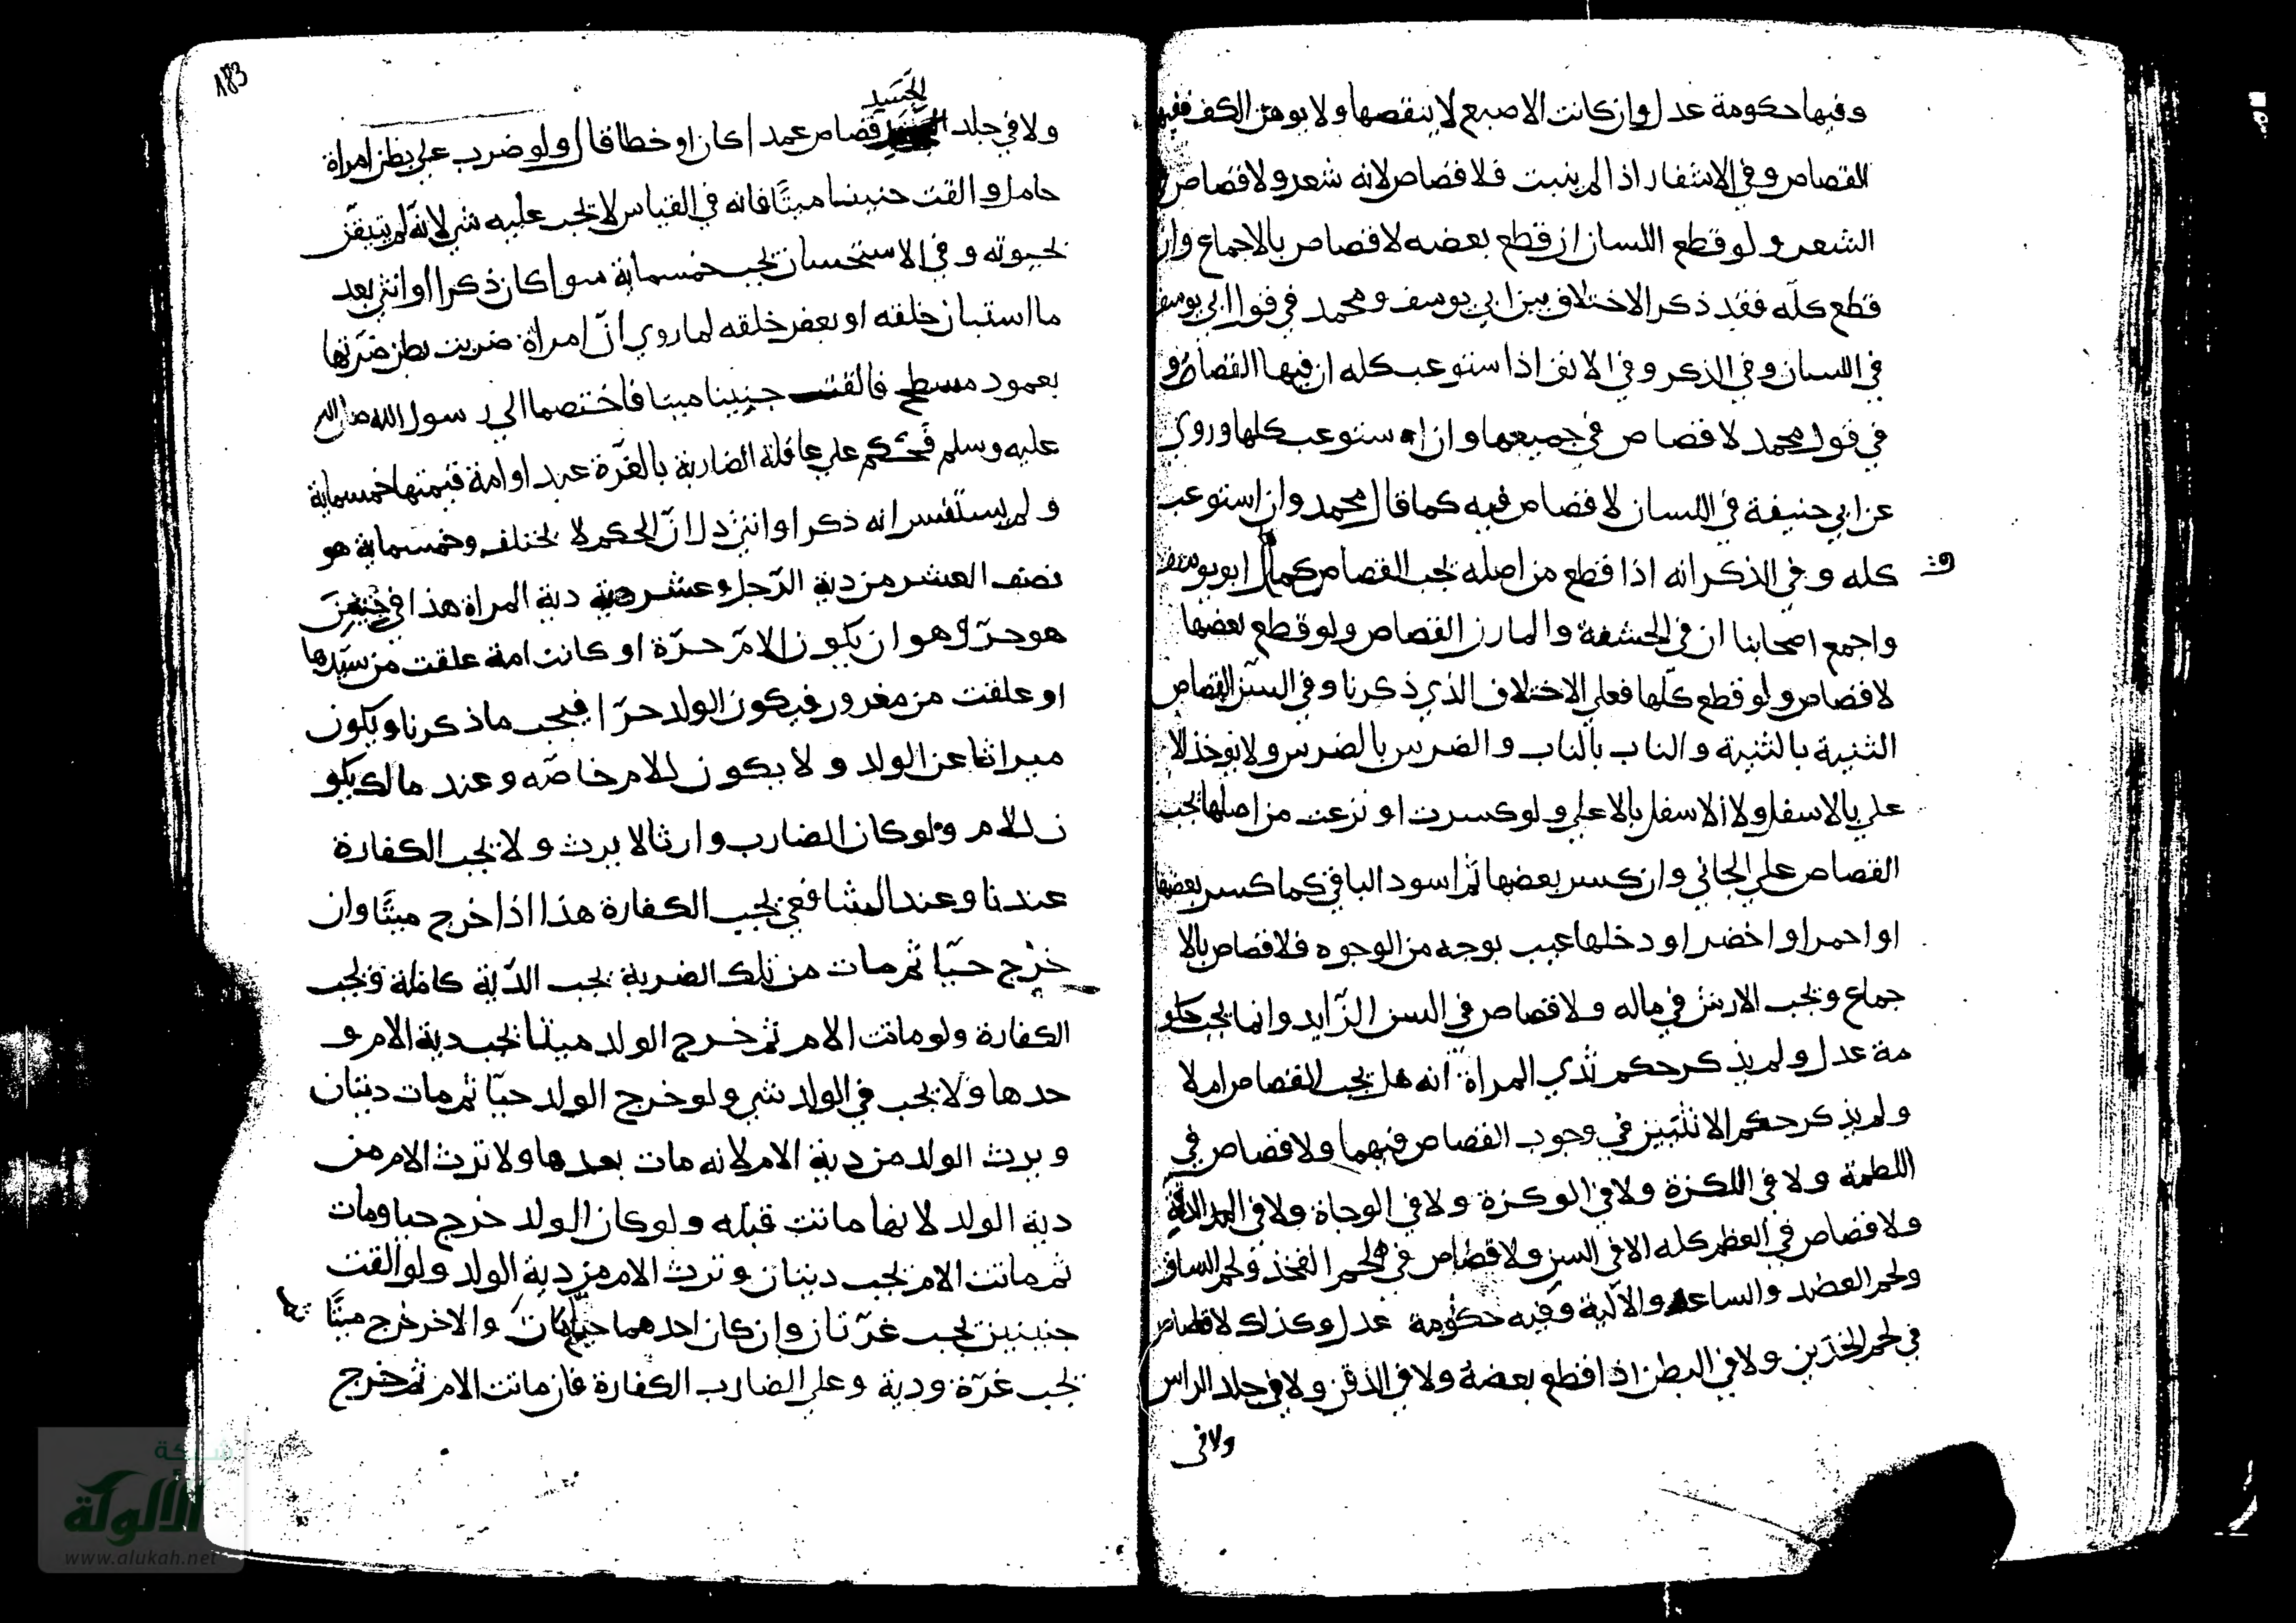 وفيها حكومة عدل وان كانت الاصبع لا ينقصها ولا يوهن الكف ففيها
القصاص وفي الاشفار اذا لم ينبت فلا قصاص لانه شعر ولا قصاص في
الشعر ولو قطع اللسان ان قطع بعضه لا قصاص بالاجماع وان
قطع كلّه فقد ذكر الاختلاف بين ابي يوسف ومحمد في قول ابي يوسف
في اللسان وفي الذكر وفي الانف اذا ستوعب كله ان فيها القصاص و
في قول محمد لا قصاص في جميعها وان استوعب كلها وروي
عن ابي حنيفة في اللسان لا قصاص فيه كما قال محمد وان استوعب
كله وفي الذكر انه اذا قطع من اصله يجب القصاص كما قال ابو يوسف
واجمع اصحابنا ان في الحشفة والمارن القصاص ولو قطع بعضها
لا قصاص ولو قطع كلّها فعلي الاختلاف الذي ذكرنا وفي السّن القصاص
الثنية بالثنية والناب بالناب والضرس بالضرس ولا يوخذ الا
علي بالاسفل ولا الاسفل بالاعلي ولو كسرت او نزعت من اصلها يجب
القصاص علي الجاني وان كسر بعضها ثم اسود الباقي كما كسر بعضها
او احمر او اخضر او دخلها عيب بوجه من الوجوه فلا قصاص بالا
جماع ويجب الارش في ماله ولا قصاص في السن الزّايد وانما يجب حكو
مة عدل ولم يذكر حكم ثدي المراة انه هل يجب القصاص ام لا
ولم يذكر حكم الانثيين في وجوب القصاص فيهما ولا قصاص في
اللطمة ولا في اللكزة ولا في الوكزة ولا في الوجاة ولا في
ولا قصاص في العظم كله الا في السن ولا قصاص في لحم الفخذ ولحم الساق
ولحم العضد والساعد والالية وفيه حكومة عدل وكذلك لا قصاص
في لحم الخدّين ولا في البطن اذا قطع بعضه ولا في الذقن ولا في جلد الراس
ولا في
183
الجسد
ولا في جلد قصاص عمدا كان او خطا قال ولو ضرب علي بطن امراة
حامل والقت جنينا ميتًا فانه في القياس لا يجب عليه شي لانه لم يتيقّن
بحيوته وفي الاستحسان يجب خمسماية سوا كان ذكرا او انثي بعد
ما استبان خلقه او بعض خلقه لما روي انّ امراة ضربت بطن ضرّتها
بعمود مسطح فالقت جنينا ميتا فاختصما الي رسول الله صلي الله
عليه وسلم فَحَكم علي عاقلة الضاربة بالغرّة عبد او امة قيمتها خمسماية
ولم يستفسر انه ذكر او انثي دل انّ الحكم لا يختلف وخمسماية هو
نصف العشر من دية الرّجل وعشر دية المراة هذا في جنين
هو حرّ وهو ان يكون الامّ حرّة او كانت امة علقت من سيّدها
او علقت من مغرور فيكون الولد حرّا فيجب ما ذكرنا ويكون
ميراثا عن الولد ولا يكون للام خاصّه وعند مالك يكو
ن للام ولو كان الضارب وارثا لا يرث ولا يجب الكفارة
عندنا وعند الشافعي يجب الكفارة هذا اذا خرج ميتًا وان
خرج حيّا ثم مات من تلك الضربة يجب الدّية كاملة ويجب
الكفارة ولو ماتت الام ثم خرج الولد ميتا يجب دية الام و
حدها ولا يجب في الولد شي ولو خرج الولد حيّا ثم مات ديتان
ويرث الولد من دية الام لانه مات بعدها ولا ترث الام من
دية الولد لانها ماتت قبله ولو كان الولد خرج حيا ومات
ثم ماتت الام يجب ديتان وترث الام من دية الولد ولو القت
جنينين يجب غرّتان وان كان احدهما حيا والاخر خرج ميتًا
يجب غرّة ودية وعلي الضارب الكفارة فان ماتت الام ثم خرج
شبكة
الألوكة
www.alukah.net